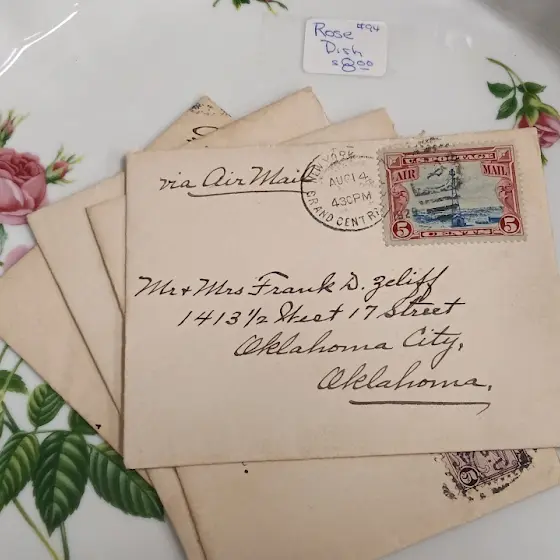 Rose #94
Dish
$8.00
via Air Mail
NEW YORK
AUG 14
430 PM
1928
GRAND CENT
U.S. POSTAGE
AIR MAIL
5 5
CENTS
Mr & Mrs Frank D. Zeliff
1413 1/2 West 17 Street
Oklahoma City,
Oklahoma.
5